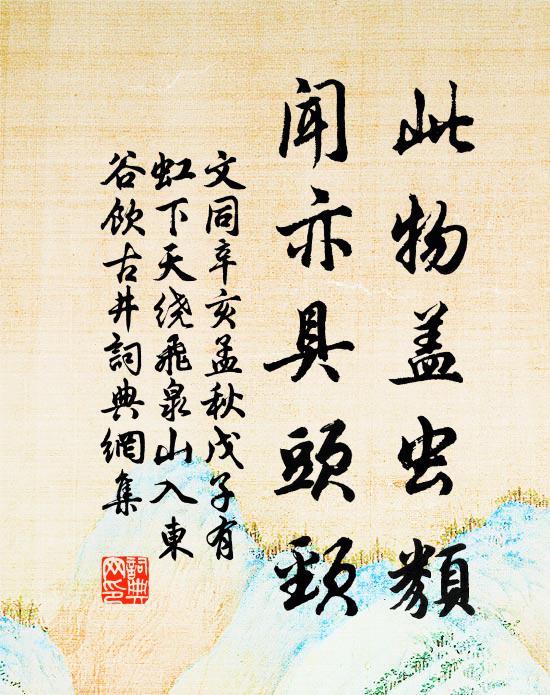 此物盖虫類
聞亦具頭頸
文同辛亥孟秋戊子有
虹下天绕飛泉山入東
谷飲古井詞典網集
詞典
网印